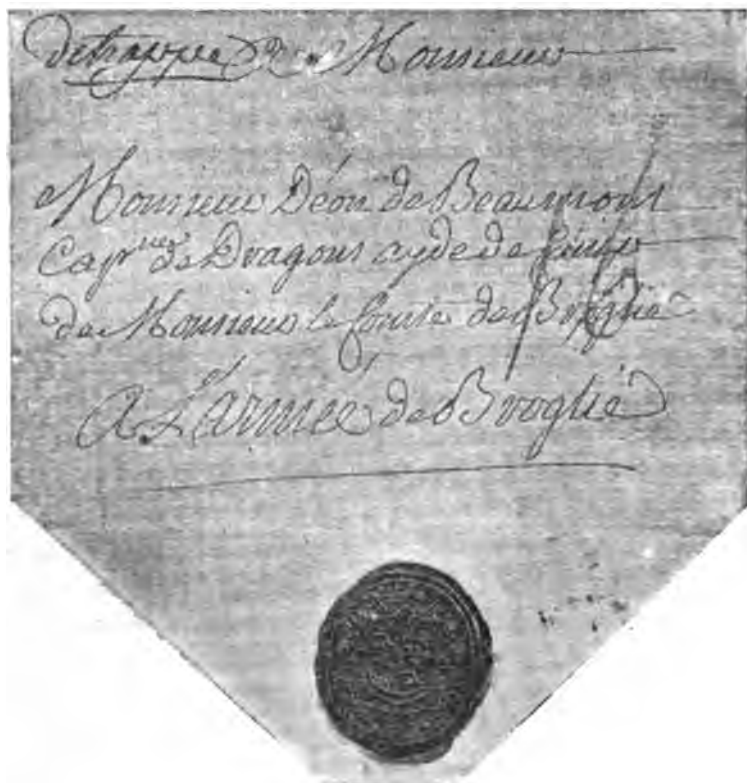 detrappe A Monsieur
Monsieur Déon de Beaumont
Cap.ne de Dragons aydede Camp
de Monsieur le Comte de Broglie
A L'armée de Broglie